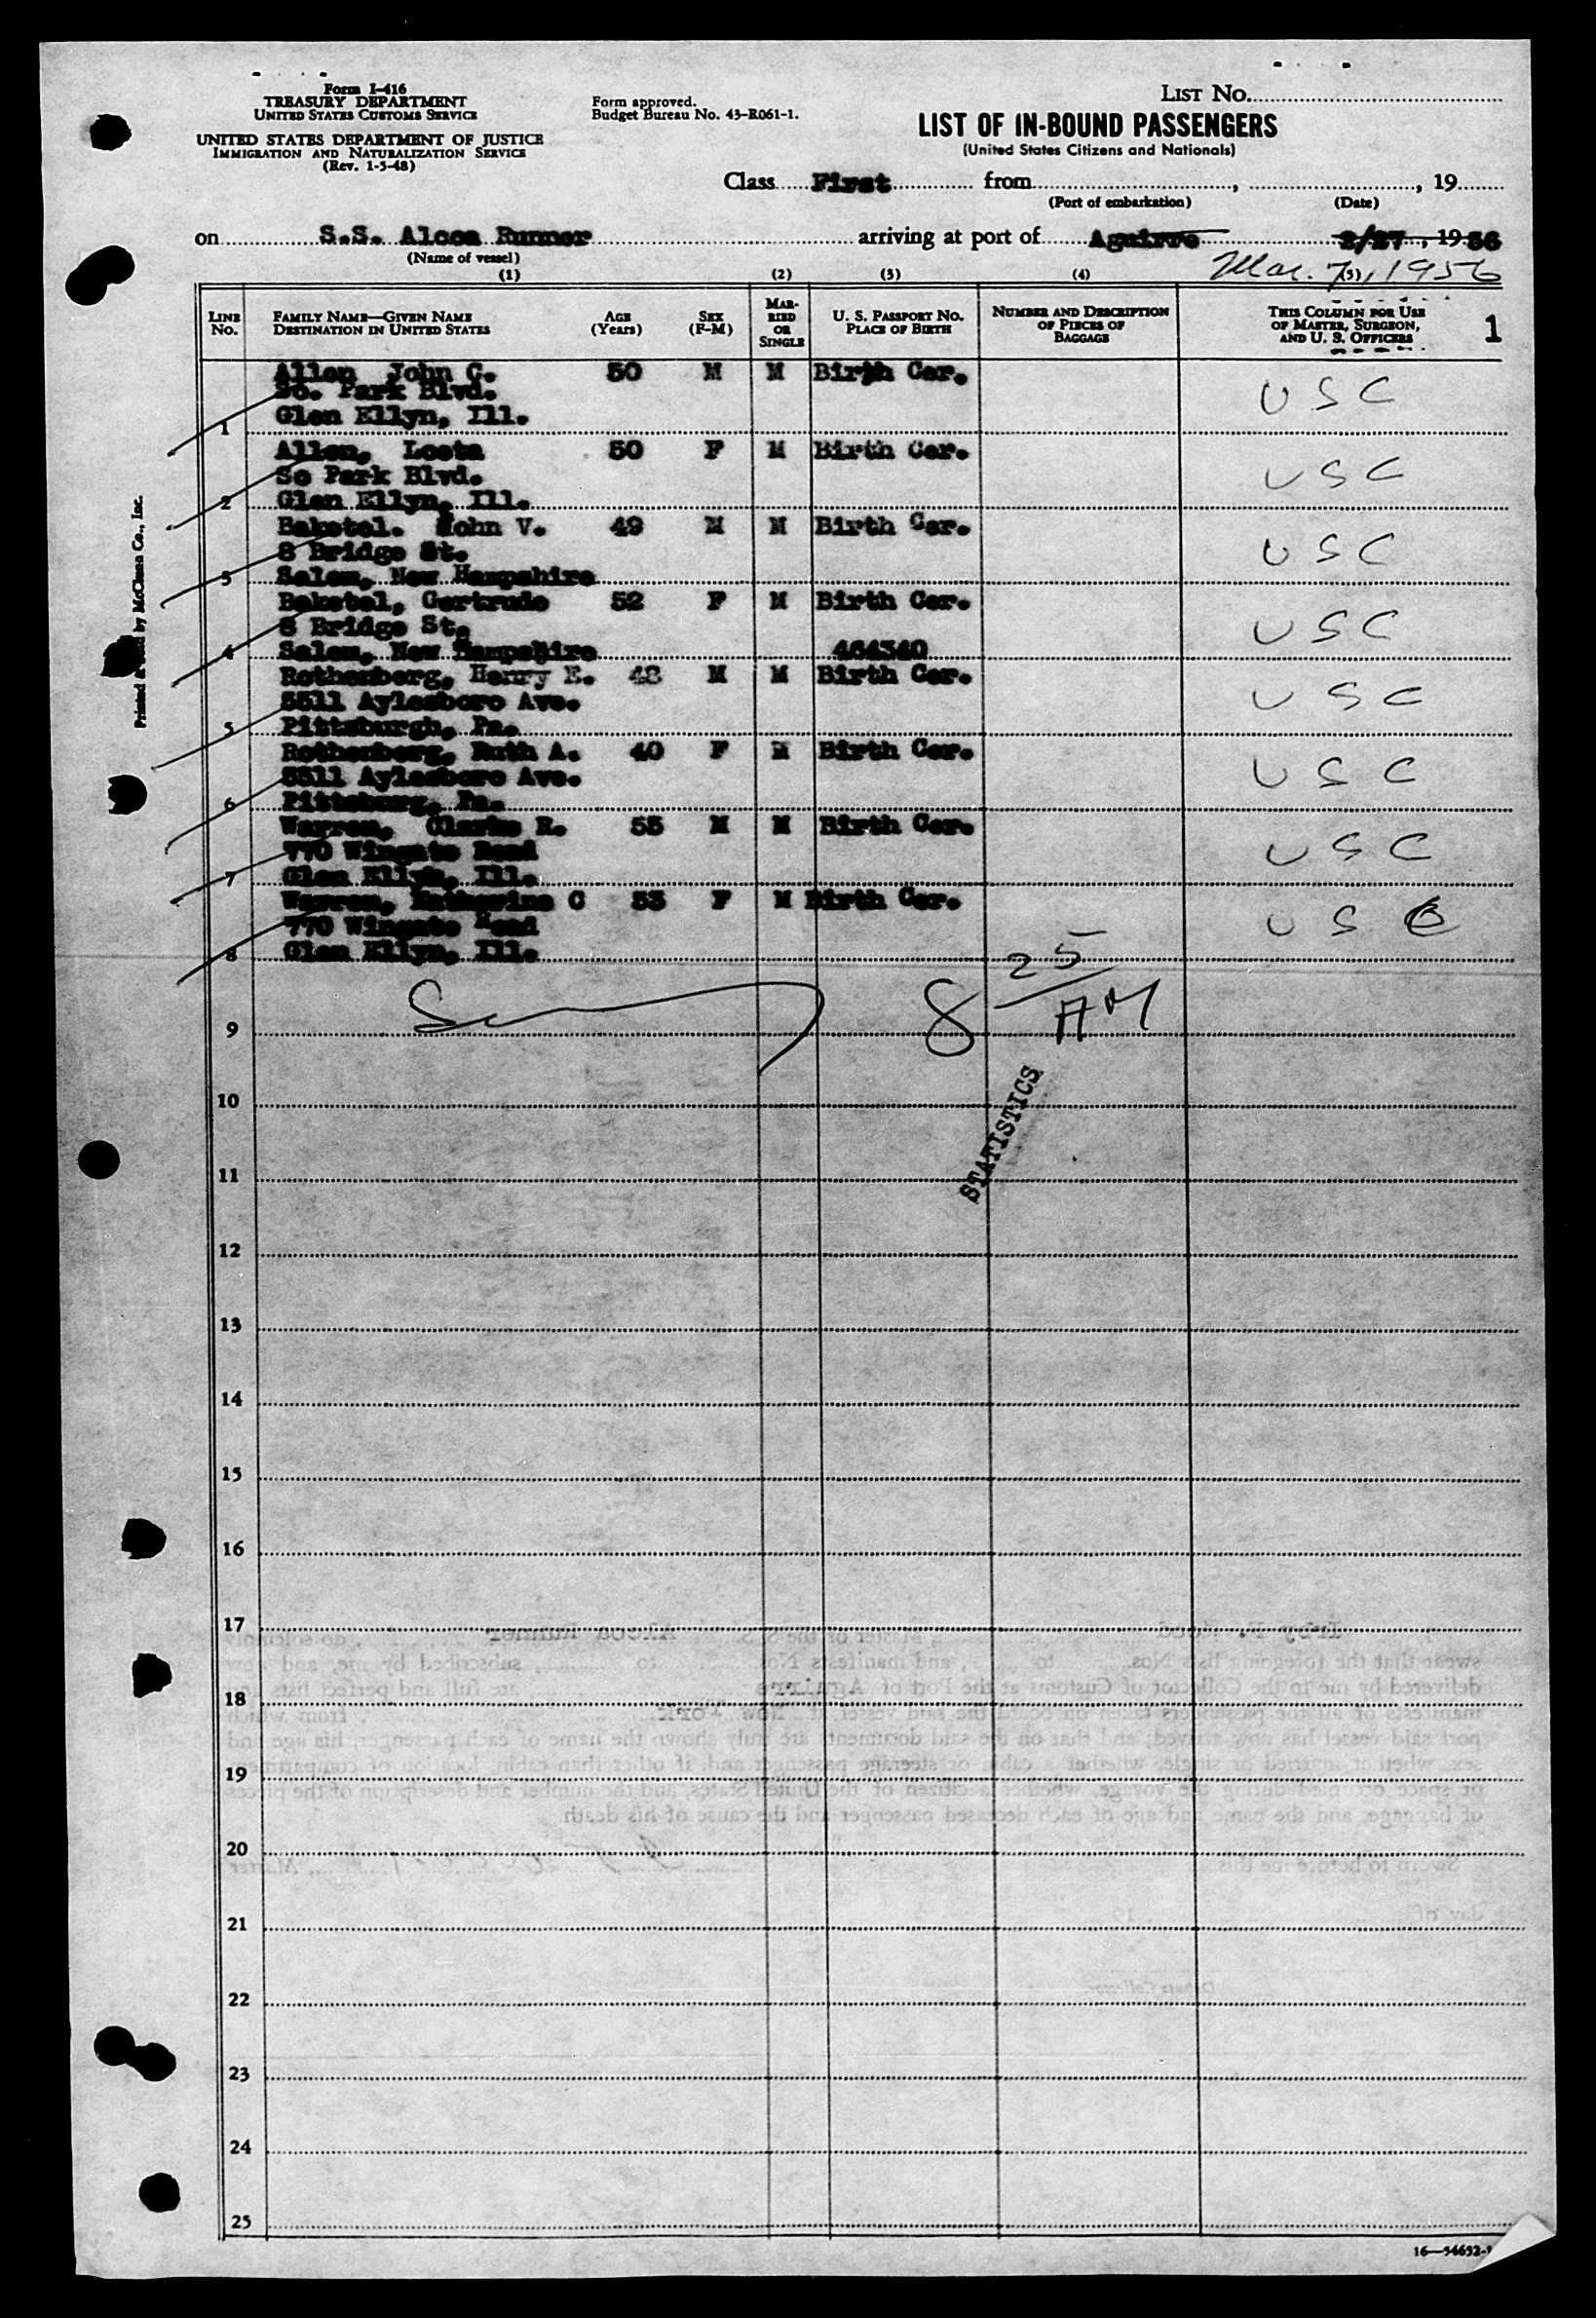 Form I-416
TREASURY DEPARTMENT
UNITED STATES CUSTOMS SERVICE
UNITED STATES DEPARTMENT OF JUSTICE
IMMIGRATION AND NATURALIZATION SERVICE
(Rev. 1-5-48)
Form approved.
Budget Bureau No. 43-R061-1.
LIST NO.
LIST OF IN-BOUND PASSENGERS
(United States Citizens and Nationals)
Class First from , , 19
(Port of embarkation) (Date)
on S.S. Alcoa Runner arriving at port of Aguirre 2/27, 1956
(Name of vessel)
Mar. 7, 1956
(1) (2) (3) (4) (5)
LINE No. FAMILY NAME—GIVEN NAME DESTINATION IN UNITED STATES AGE (Years) SEX (F-M) MARRIED OR SINGLE U. S. PASSPORT NO. PLACE OF BIRTH NUMBER AND DESCRIPTION OF PIECES OF BAGGAGE THIS COLUMN FOR USE OF MASTER, SURGEON, AND U. S. OFFICERS 1
Allen John C. 50 M M Birth Cer.
So. Park Blvd. U S C
Glen Ellyn, Ill.
1
Allen, Leeta 50 F M Birth Cer.
So Park Blvd. U S C
2 Glen Ellyn, Ill.
Baketel. John V. 49 M M Birth Cer.
8 Bridge St. U S C
3 Salem, New Hampshire
Baketel, Gertrude 52 F M Birth Cer.
8 Bridge St. U S C
4 Salem, New Hampshire 464340
Rothenberg, Henry E. 48 M M Birth Cer.
5511 Aylesboro Ave. U S C
5 Pittsburgh, Pa.
Rothenberg, Ruth A. 40 F M Birth Cer.
5511 Aylesboro Ave. U S C
6 Pittsburg, Pa.
Warren, Clarke R. 55 M M Birth Cer.
770 Wingate Road U S C
7 Glen Ellyn, Ill.
Warren, Katherine C 53 F M Birth Cer.
770 Wingate Road U S C
8 Glen Ellyn, Ill.
8 25/AM
9
10
STATISTICS
11
12
13
14
15
16
17
18
19
20
21
22
23
24
25
Printed & Sold by McClunn Co., Inc.